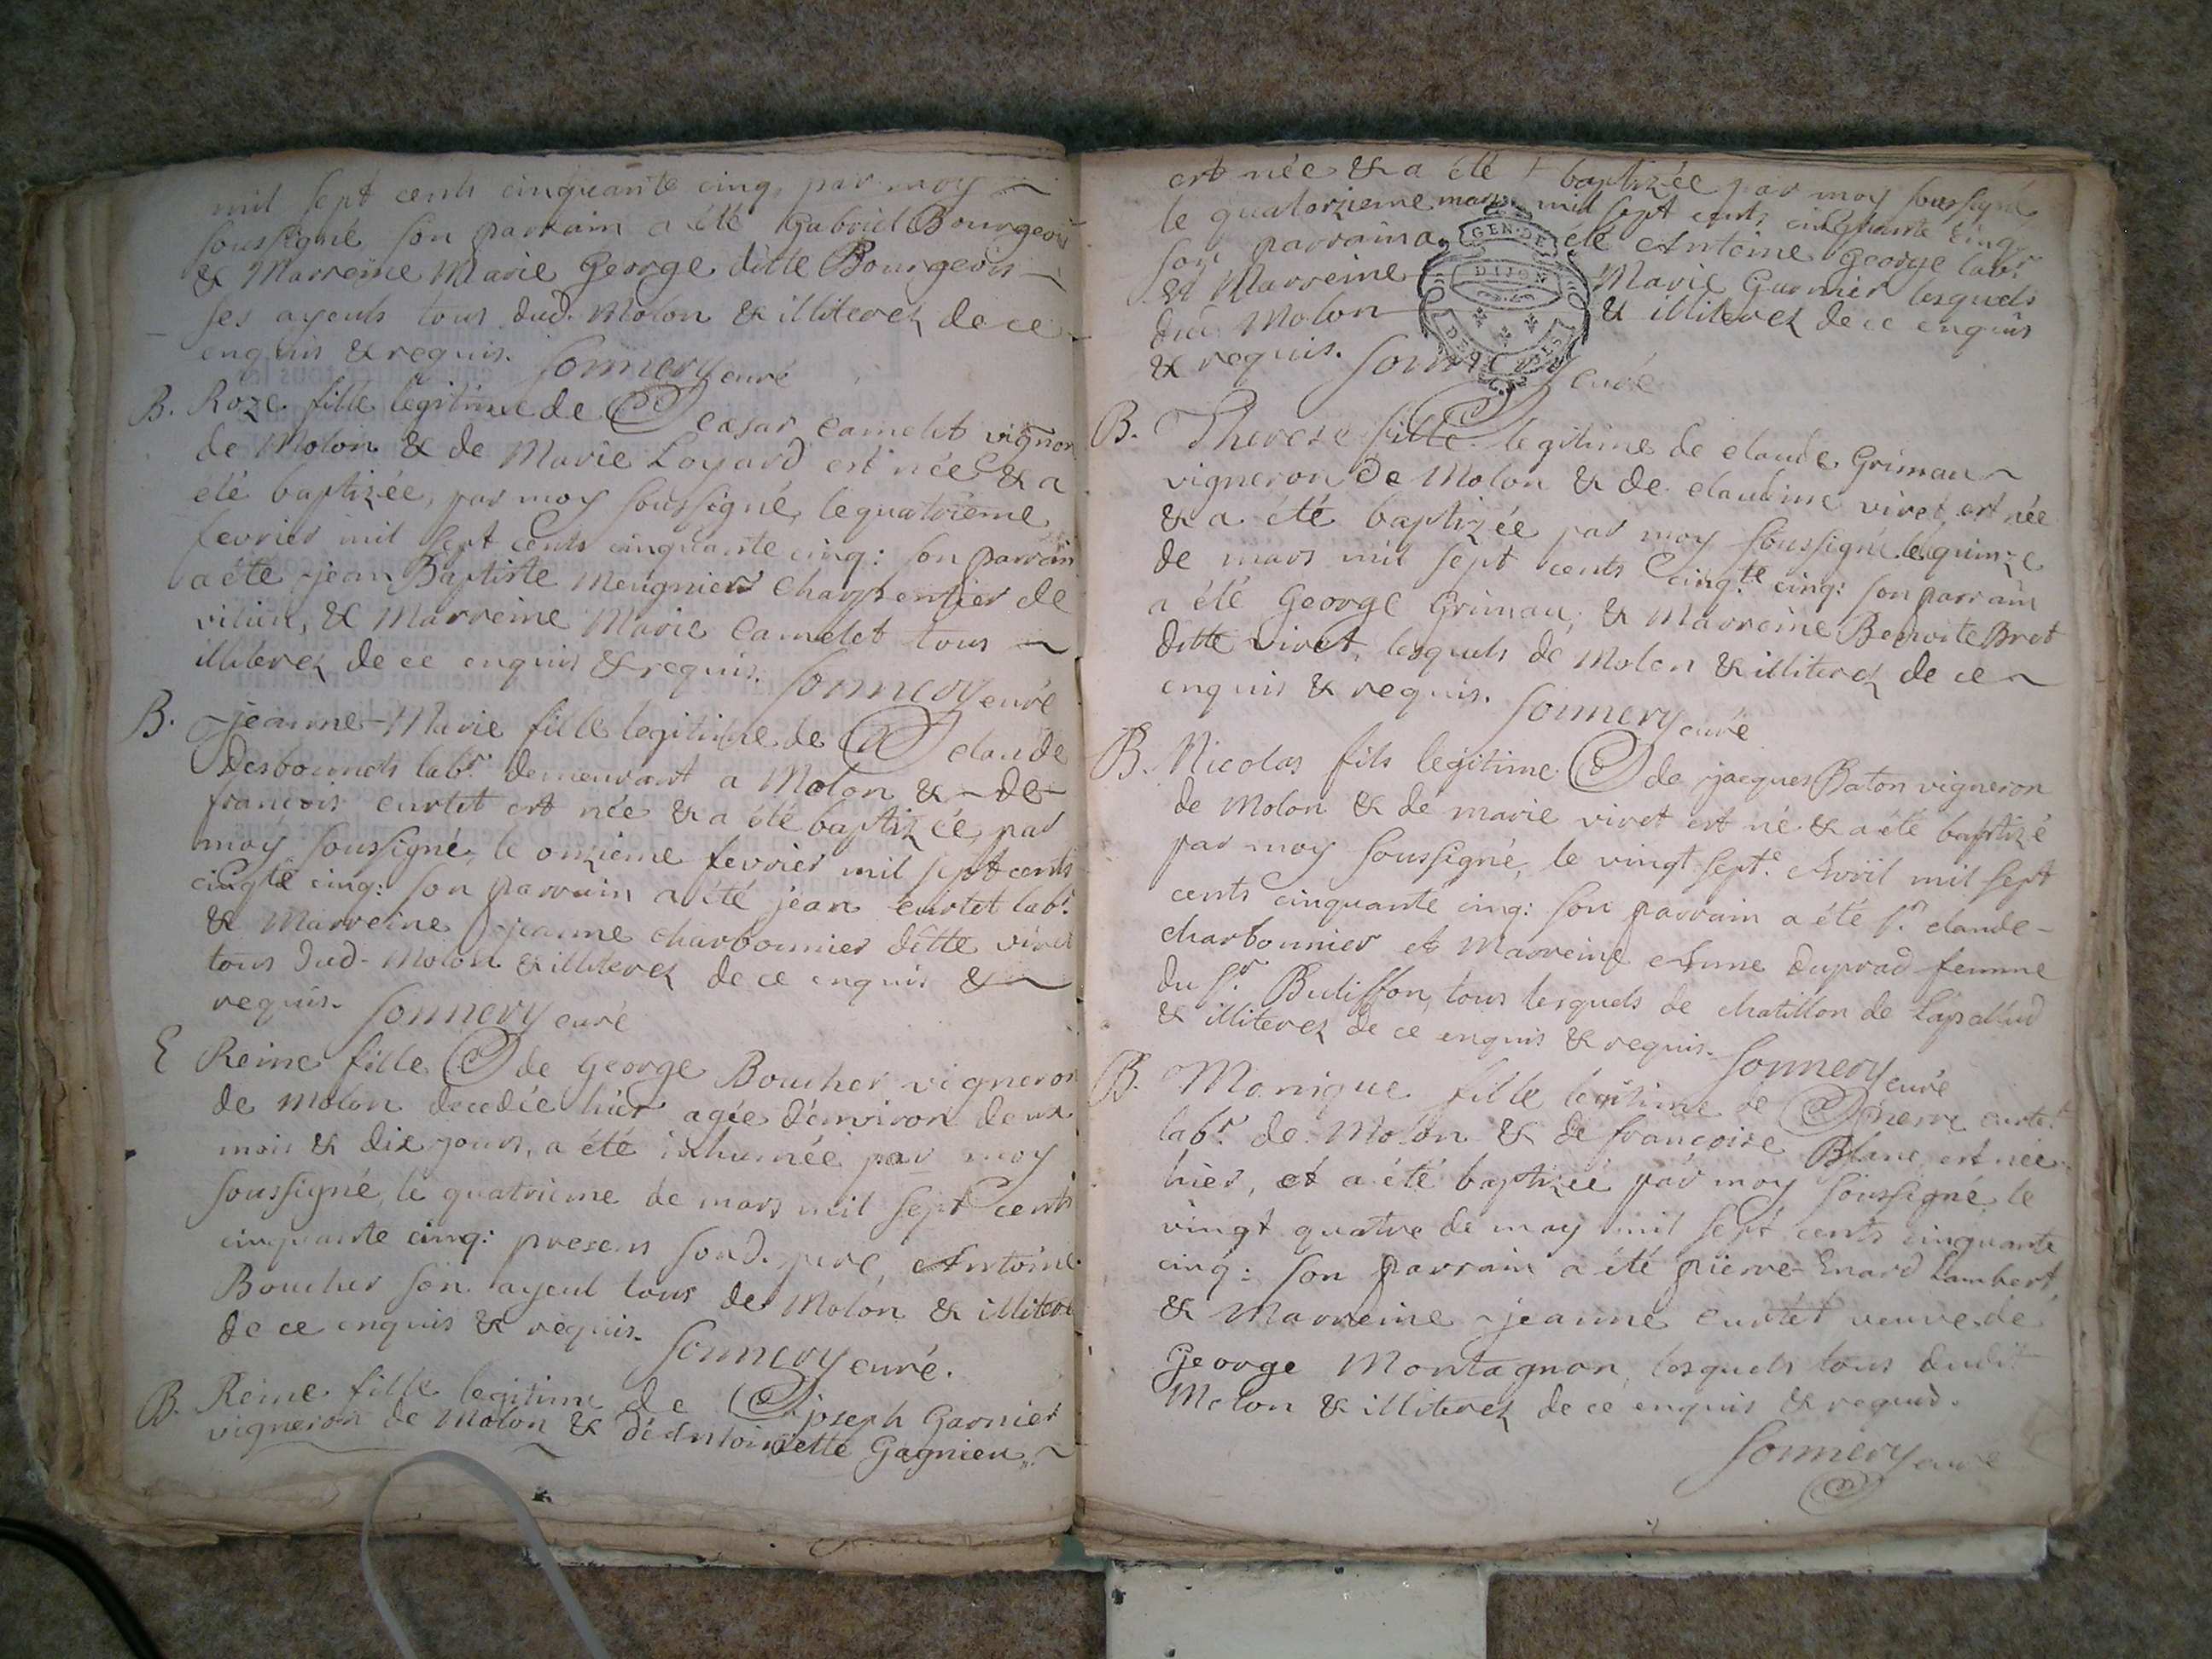 mil sept cents cinquante cinq, par moy
soussigné son parrain a été Gabriel Bourgeois
& Marreine Marie George ditte Bourgeois
ses ayeuls tous dud. Molon & illiterez de ce
enquis & requis. Sonnery curé
B. Roze fille legitime de Cæsar Camelet vigneron
de Molon & de Marie Loyard est née & a
eté baptizée, par moy soussigné, le quatrieme
fevrier mil sept cents cinquante cinq: son parrain
a été jean Baptiste Meugnier charpentier de
& Marreine Marie Camelet tous
illiterez de ce enquis & requis. Sonnery curé
B. jeanne-Marie fille legitime de claude
labr. demeurant a Molon & de
françois curtet est née & a été baptizée, par
moy soussigné, le onzieme fevrier mil sept cents
cinqte cinq: son parrain a été jean curtet labr.
& Marreine jeanne charbonnier ditte viret
tous dud. Molon & illiterez de ce enquis &
requis. Sonnery curé
E Reine fille de George Boucher vigneron
de Molon decedée hier agée d'environ deux
mois & dix jours, a été inhumée par moy
soussigné, le quatrieme de mars mil sept cents
cinquante cinq: presens sond. pere, Antoine
Boucher son ayeul tous de Molon & illiterez
de ce enquis & requis. Sonnery curé.
B. Reine fille legitime de joseph Garnier
vigneron de Molon & d'Antoinette Gagnieu
est née & a été baptizée par moy soussigné
le quatorzieme mars mil sept cents cinquante cinq
son parrain a été Antoine George labr.
& Marreine Marie Garnier lesquels
dud Molon & illiterez de ce enquis
& requis. Sonnery curé
GEN. DE
DIJON
B. Therese fille legitime de claude Grimau
vigneron de Molon & de claudine viret, est née
& a été baptizée par moy soussigné le quinze
de mars mil sept cents cinqte cinq: son parrain
a été George Grimau, & Marreine Benoite Bret
ditte viret, lesquels de Molon & illiterez de ce
enquis & requis. Sonnery curé
B. Nicolas fils legitime de jacques Baton vigneron
de Molon & de marie viret est né & a été baptizé
par moy soussigné, le vingt septe. Avril mil sept
cents cinquante cinq: son parrain a été sr. claude
charbonnier et Marreine Anne duprad femme
du sr. Butiffon, tous lesquels de chatillon de Lapallud
& illiterez de ce enquis & requis. Sonnery curé
B. Monique fille legitime de pierre curtet
labr. de Molon & de françoise Blanc, est née
hier, et a été baptizée par moy soussigné, le
vingt quatre de may mil sept cents cinquante
cinq: son parrain a été pierre Enard Lambert,
& Marreine jeanne curtet veuve de
George Montagnon, lesquels tous dudit
Molon & illiterez de ce enquis & requis.
Sonnery curé